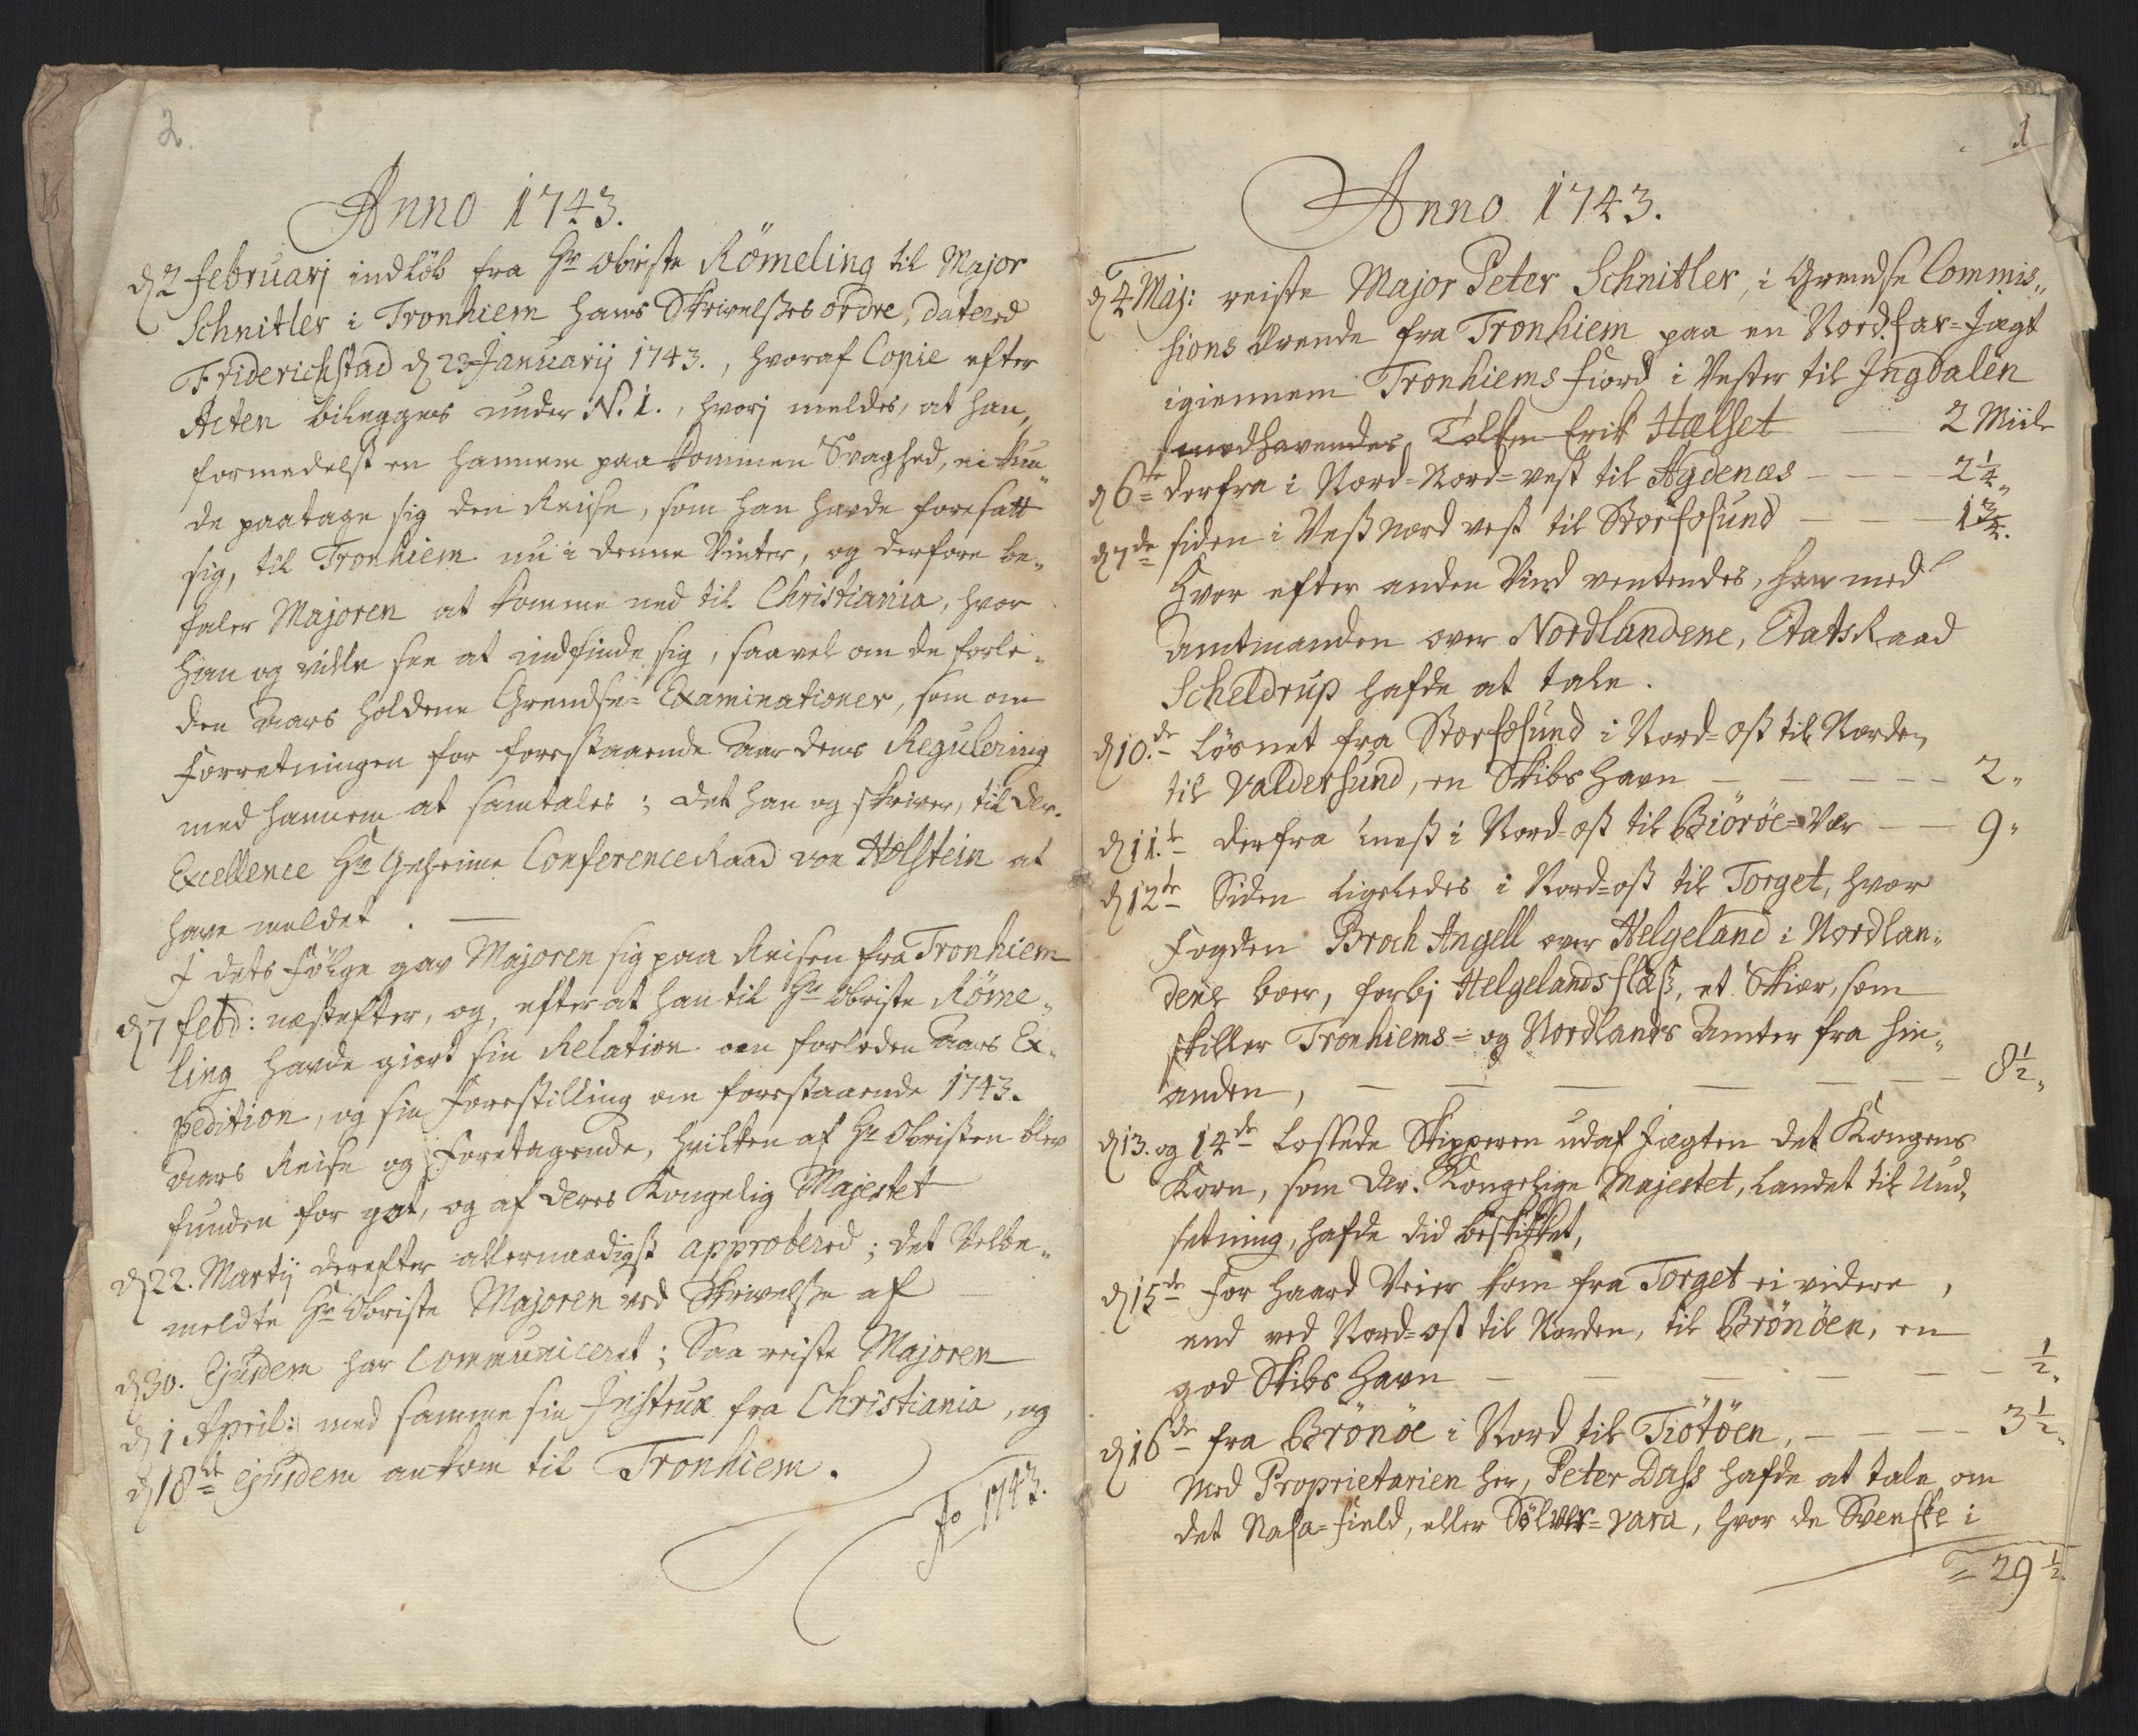 2.
Anno 1743.
d 2 februarj indløb fra Hr Obriste Römeling til Major
Schnitler i Tronhiem hans Skrivelses ordre, datered
Friderichstad d 23 Januarij 1743., hvoraf Copie efter
Acten bilegges under N. 1., hvorj meldes, at han,
formedelst en hannem paakommen Svaghed, ei kun„
de paatage sig den Reise, som han havde foresatt
sig, til Tronhiem nu i denne Vinter, og derfore be„
faler Majoren at komme ned til Christiania, hvor
han og vilde see at indfinde sig, saavel om de forle„
den Aars holdene Grendse-Examinationer, som om
Forretningen for forestaaende Aar dens Regulering
med hannem at samtales; det han og skriver, til der.
Excellence Hr Geheime Conference Raad von Holstein at
have meldet.
I dets følge gav Majoren sig paa Reisen fra Tronhiem
d 7 febr: næstefter, og, efterat han til Hr Obriste Röme„
ling havde giort sin Relation om forleden Aars Ex„
pedition, og sin Forestilling om forestaaende 1743.
Aars Reise og Foretagende, hvilken af Hr Obristen blev
funden for got, og af deres Kongelig Majestet
d 22. Martij derefter allernaadigst approbered; det Velbe„
meldte Hr Obriste Majoren ved Skrivelse af
d 30. Ejusdem har communiceret; Saa reiste Majoren
d 1 April: med samme sin Instrux fra Christiania, og
d 18de ejusdem ankom til Tronhiem.
Ao 1743.
1
Anno 1743.
d 4 Maj: reiste Major Peter Schnitler, i Grendse Commis„
sions Ærende fra Tronhiem paa en Nord.far-Jagt
igiennem Tronhiems Fiord i Vester til Ingdalen
medhavendes Tolken Erik Hælset — 2 Miile
d 6te derfra i Nord-Nord-vest til Agdenæs — 2 1/4„
d 7de siden i Vest Nord vest til Storfosund — 1 3/4.
Hvor efter anden Vind ventendes, han med
Amtmanden over Nordlandene, Etats Raad
Scheldrup hafde at tale.
d 10.de løsnet fra Storfosund i Nord-ost til Norden
til Valdersund, en Skibs Havn — 2„
d 11.te derfra mest i Nord-ost til Biöröe-Vær — 9„
d 12te Siden ligeledes i Nord-ost til Torget, hvor
Fogden Broch Angell over Helgeland i Nordlan„
dene boer, forbj Helgelands flæs, et Skiær, som
skiller Tronhiems- og Nordlands Amter fra hin„
anden, — 8 1/2„
d 13. og 14de Lossede Skipperen udaf Jagten det Kongens
Korn, som der. Kongelige Majestet, Landet til Und„
setning, hafde did beskikket,
d 15de For haard Veier kom fra Torget ei videre,
end ved Nord-ost til Norden, til Brönöen, en
god Skibs Havn — 1/2„
d 16de fra Brönöe i Nord til Tiötöen, — 3 1/2„
Med Proprietarien her, Peter Dass hafde at tale om
det Nasa-Field, eller Sölver-vara, hvor de Svenske i
= 29 1/2.